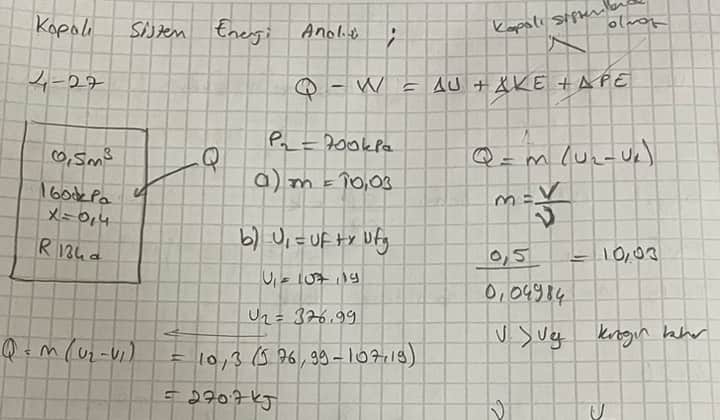 Kapalı Sistem Enerji Analizi ;
Kapalı sistemlerde
olmaz
4-27
Q - W = ΔU + ΔKE + ΔPE
0,5m³
160kPa
x=0,4
R 134a
Q
P₂ = 700kPa
a) m = 10,03
b) U₁ = Uf + x Ufg
U₁ = 107,19
U₂ = 376,99
Q = m (U₂ - U₁)
m = V/ν
0,5 / 0,04984 = 10,03
ν > νg kızgın buhar
Q = m (U₂ - U₁) = 10,3 (376,99 - 107,19)
= 2707 kJ
ν U